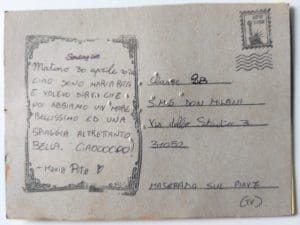 Sending love
Matino 30 aprile
CIAO SONO MARIA RITA
E VOLEVO DIRVI CHE
NOI ABBIAMO UN MARE
BELLISSIMO ED UNA
SPIAGGIA ALTRETTANTO
BELLA. CIAOOOOO!
- MARIA RITA
Classe 2B
S.M.S DON MILANI
Via dello Stadio 3
31052
MASERADA SUL PIAVE
(TV)